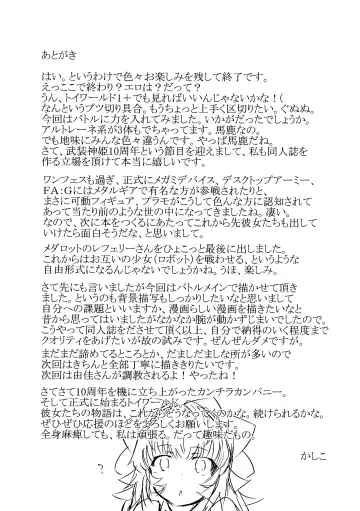 あとがき
はい。というわけで色々お楽しみを残して終了です。
えっここで終わり？エロは？だって？
うん、トイワールド1＋でも見ればいいんじゃないかな！(
なんというブツ切り具合。もうちょっと上手く区切りたい。ぐぬぬ。
今回はバトルに力を入れてみました。いかがだったでしょうか。
アルトレーネ系が3体もでちゃってます。馬鹿なの。
でも地味にみんな色々違うんです。やっぱ馬鹿だね。
さて、武装神姫10周年という節目を迎えまして、私も同人誌を
作る立場を頂けて本当に嬉しいです。
ワンフェスも過ぎ、正式にメガミデバイス、デスクトップアーミー、
FA:Gにはメタルギアで有名な方が参戦されたりと、
まさに可動フィギュア、プラモがこうして色んな方に認知されて
あって当たり前のような世の中になってきましたね。凄い。
なので、次に本をつくるにあたってこれから先彼女たちも出して
いけたら面白そうだな、と思いまして。
メダロットのレフェリーさんをひょこっと最後に出しました。
これからはお互いの少女(ロボット)を戦わせる、というような
自由形式になるんじゃないでしょうかね。うほ、楽しみ。
さて先にも言いましたが今回はバトルメインで描かせて頂き
ました。というのも背景描写もしっかりしたいなと思いまして
自分への課題といいますか、漫画らしい漫画を描きたいなと
昔から思ってはいましたがなかなか腕が動かずじまいでしたので、
こうやって同人誌をださせて頂く以上、自分で納得のいく程度まで
クオリティをあげたいが故の試みです。ぜんぜんダメですが。
まだまだ諦めてるところとか、だましだましな所が多いので
次回はきちんと全部丁寧に描ききりたいです。
次回は由佳さんが調教されるよ！やったね！
さてさて10周年を機に立ち上がったカンチラカンパニー。
そして正式に始まるトイワールド。
彼女たちの物語は、これからどうなってくのかな。続けられるかな。
ぜひぜひ応援のほどをよろしくお願いします。
全身麻痺しても、私は頑張る。だって趣味だもの。
かしこ
？